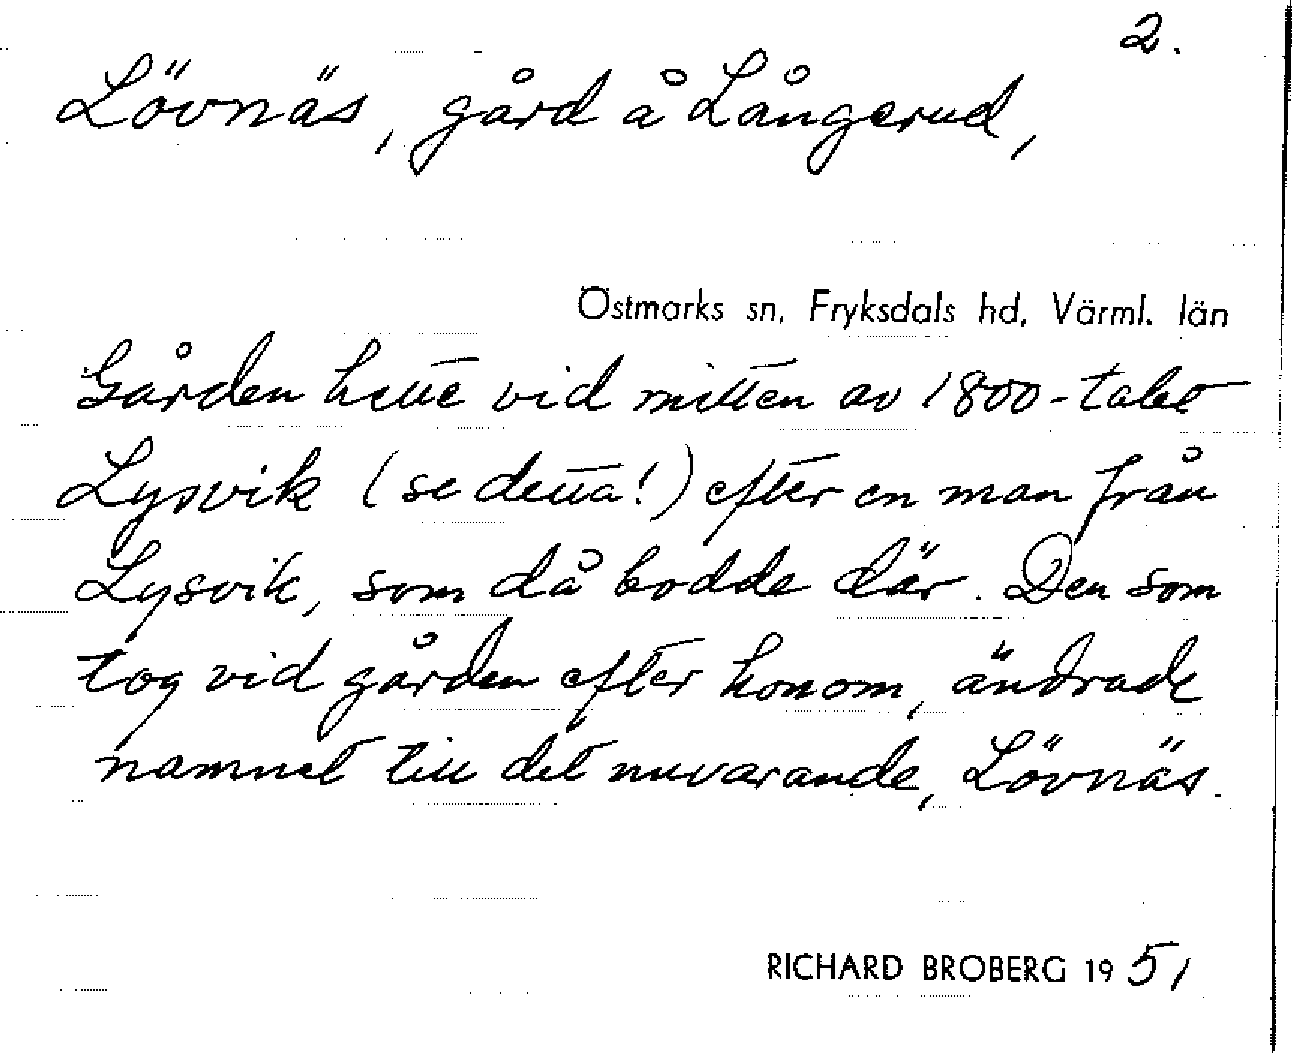 2.
Lövnäs, gård å Långerud,
Östmarks sn, Fryksdals hd, Värml. län
Gården hette vid mitten av 1800-talet
Lysvik (se detta!) efter en man från
Lysvik, som då bodde där. Den som
tog vid gården efter honom, ändrade
namnet till det nuvarande, Lövnäs.
RICHARD BROBERG 1951